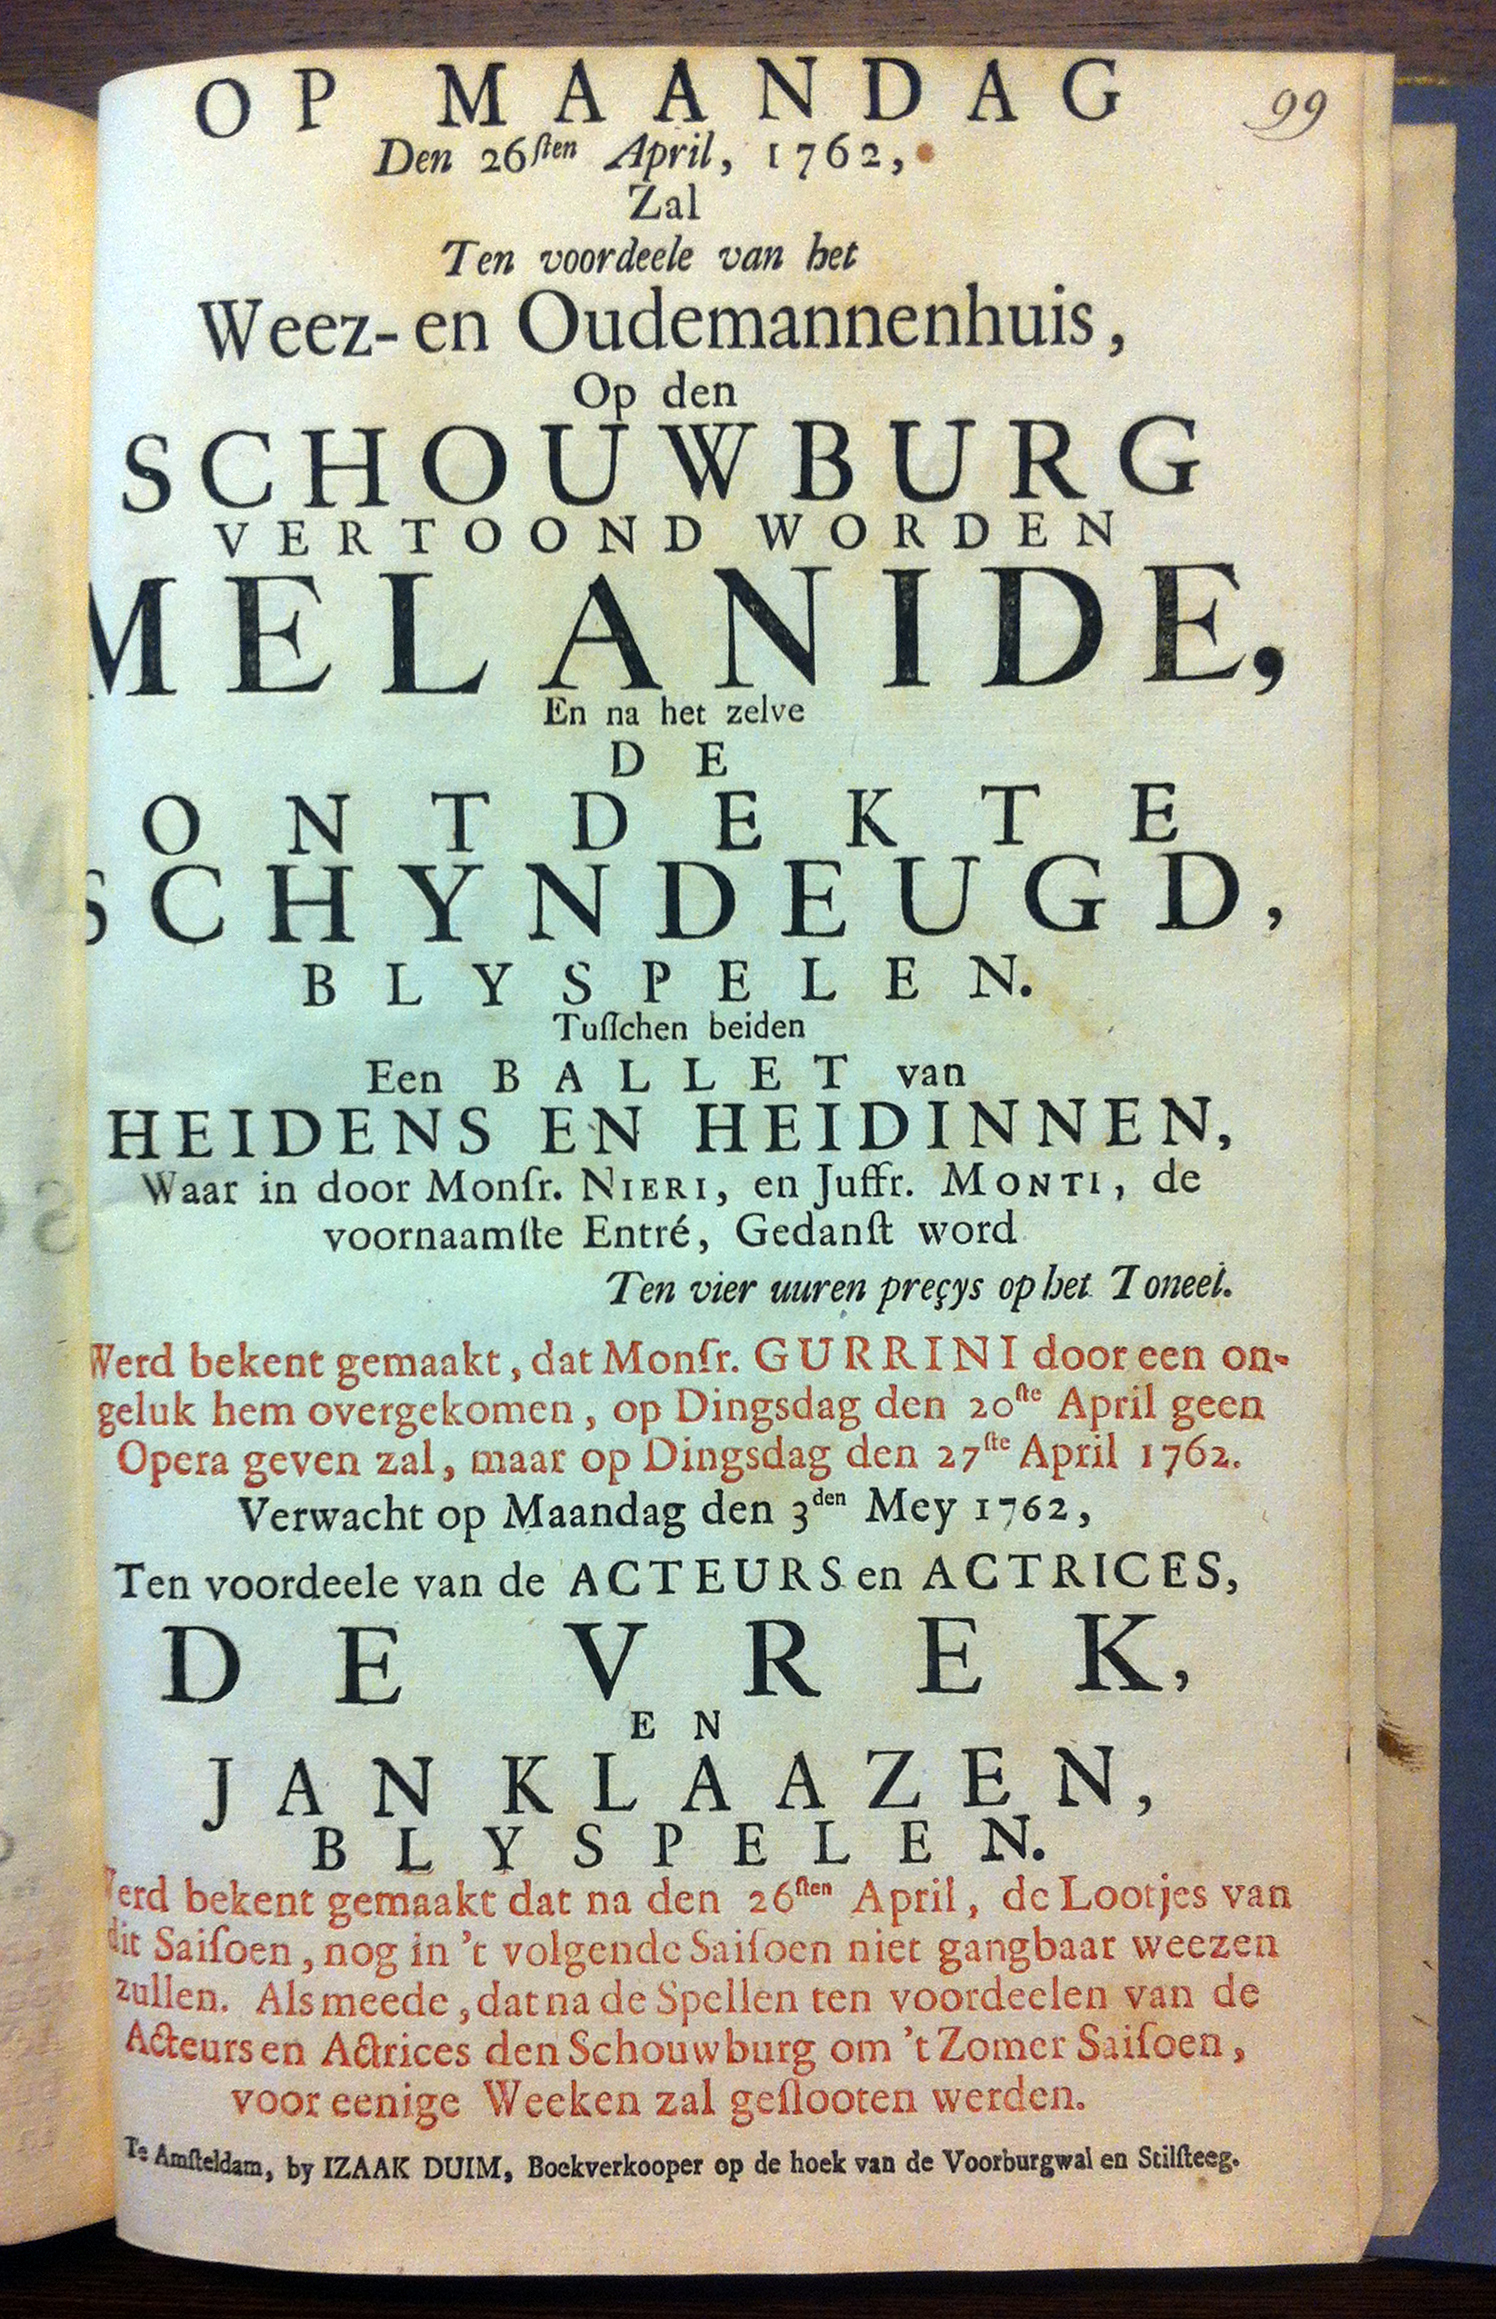 99
OP MAANDAG
Den 26ſten April, 1762,
Zal
Ten voordeele van het
Weez- en Oudemannenhuis,
Op den
SCHOUWBURG
VERTOOND WORDEN
MELANIDE,
En na het zelve
DE
ONTDEKTE
SCHYNDEUGD,
BLYSPELEN.
Tuſſchen beiden
Een BALLET van
HEIDENS EN HEIDINNEN,
Waar in door Monſr. NIERI, en Juffr. MONTI, de
voornaamſte Entré, Gedanſt word
Ten vier uuren preçys op het Toneel.
Werd bekent gemaakt, dat Monſr. GURRINI door een on-
geluk hem overgekomen, op Dingsdag den 20ſte April geen
Opera geven zal, maar op Dingsdag den 27ſte April 1762.
Verwacht op Maandag den 3den Mey 1762,
Ten voordeele van de ACTEURS en ACTRICES,
DE VREK,
EN
JAN KLAAZEN,
BLYSPELEN.
Werd bekent gemaakt dat na den 26ſten April, de Lootjes van
dit Saiſoen, nog in 't volgende Saiſoen niet gangbaar weezen
zullen. Als meede, dat na de Spellen ten voordeelen van de
Acteurs en Actrices den Schouwburg om 't Zomer Saiſoen,
voor eenige Weeken zal geſlooten werden.
Te Amſteldam, by IZAAK DUIM, Boekverkooper op de hoek van de Voorburgwal en Stilſteeg.